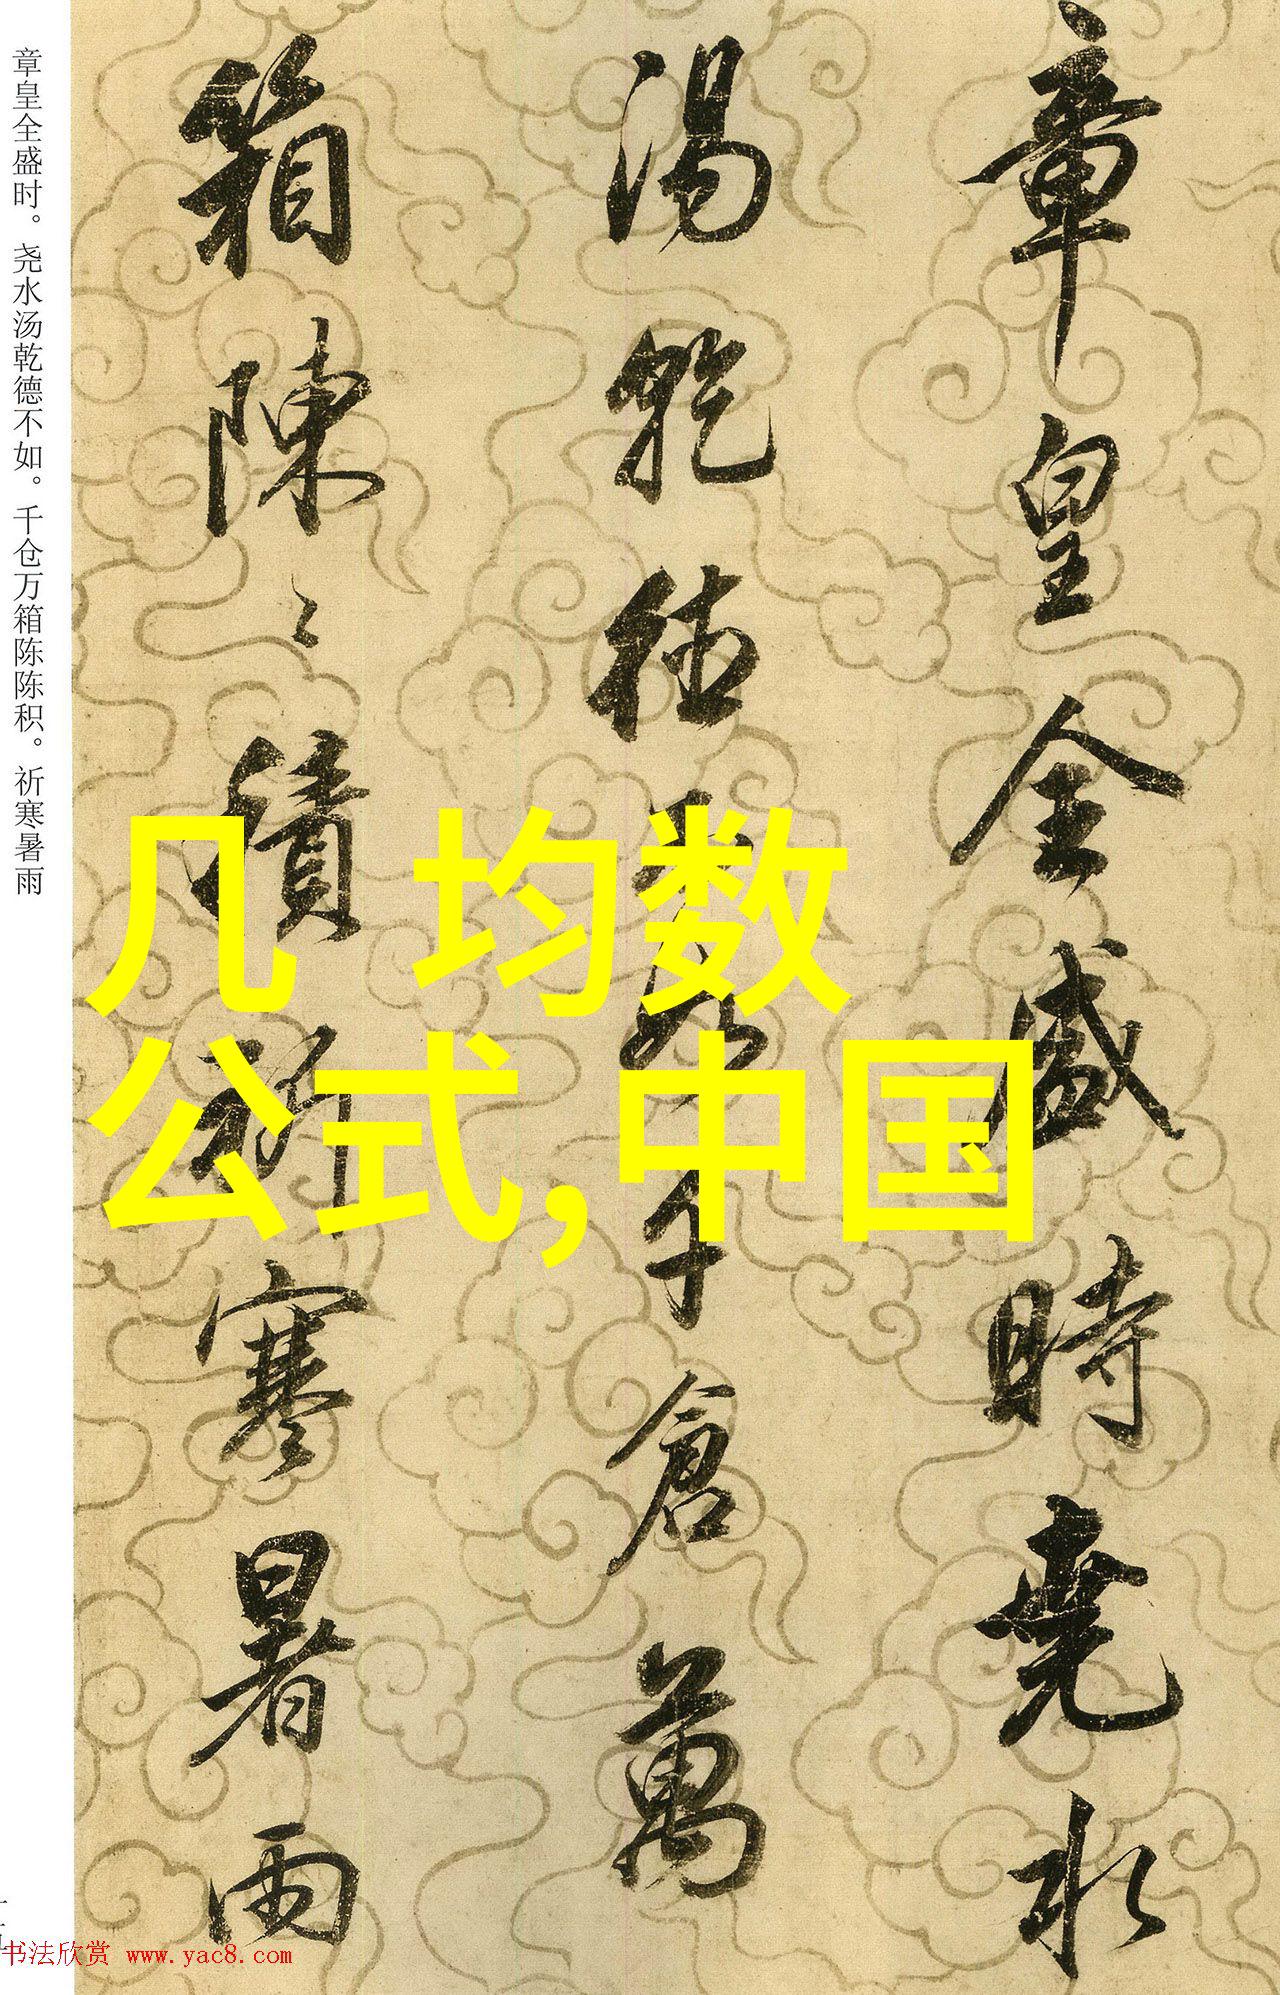 章皇全盛時堯水
湯乾德不如千倉萬
箱陳〻積祈寒暑雨
章皇全盛时。尧水汤乾德不如。千仓万箱陈陈积。祈寒暑雨
几 均数
公式,中国
书法欣赏 www.yac8.com